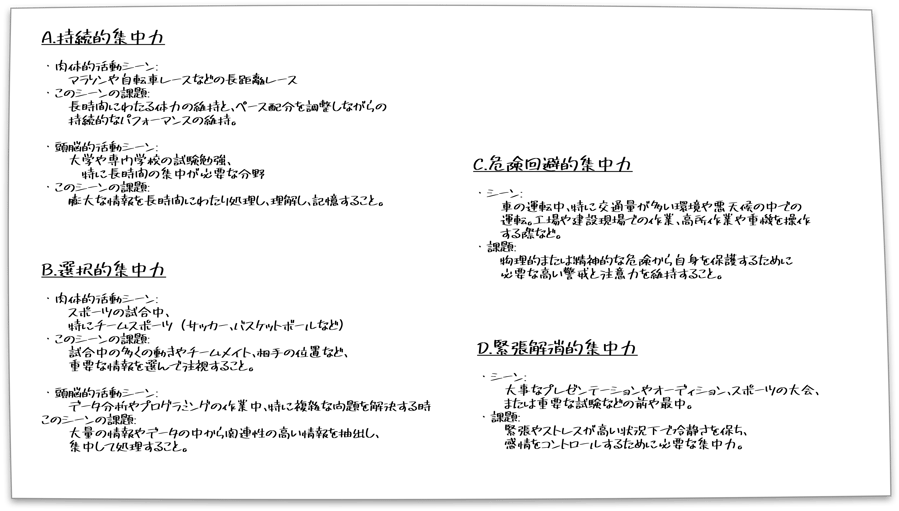 A.持続的集中力
・肉体的活動シーン:
マラソンや自転車レースなどの長距離レース
・このシーンの課題:
長時間にわたる体力の維持と、ペース配分を調整しながらの
持続的なパフォーマンスの維持。
・頭脳的活動シーン:
大学や専門学校の試験勉強、
特に長時間の集中が必要な分野
・このシーンの課題:
膨大な情報を長時間にわたり処理し、理解し、記憶すること。
B.選択的集中力
・肉体的活動シーン:
スポーツの試合中、
特にチームスポーツ（サッカー、バスケットボールなど）
・このシーンの課題:
試合中の多くの動きやチームメイト、相手の位置など、
重要な情報を選んで注視すること。
・頭脳的活動シーン:
データ分析やプログラミングの作業中、特に複雑な問題を解決する時
このシーンの課題:
大量の情報やデータの中から関連性の高い情報を抽出し、
集中して処理すること。
C.危険回避的集中力
・シーン:
車の運転中、特に交通量が多い環境や悪天候の中での
運転。工場や建設現場での作業、高所作業や重機を操作
する際など。
・課題:
物理的または精神的な危険から自身を保護するために
必要な高い警戒と注意力を維持すること。
D.緊張解消的集中力
・シーン:
大事なプレゼンテーションやオーディション、スポーツの大会、
または重要な試験などの前や最中。
・課題:
緊張やストレスが高い状況下で冷静さを保ち、
感情をコントロールするために必要な集中力。